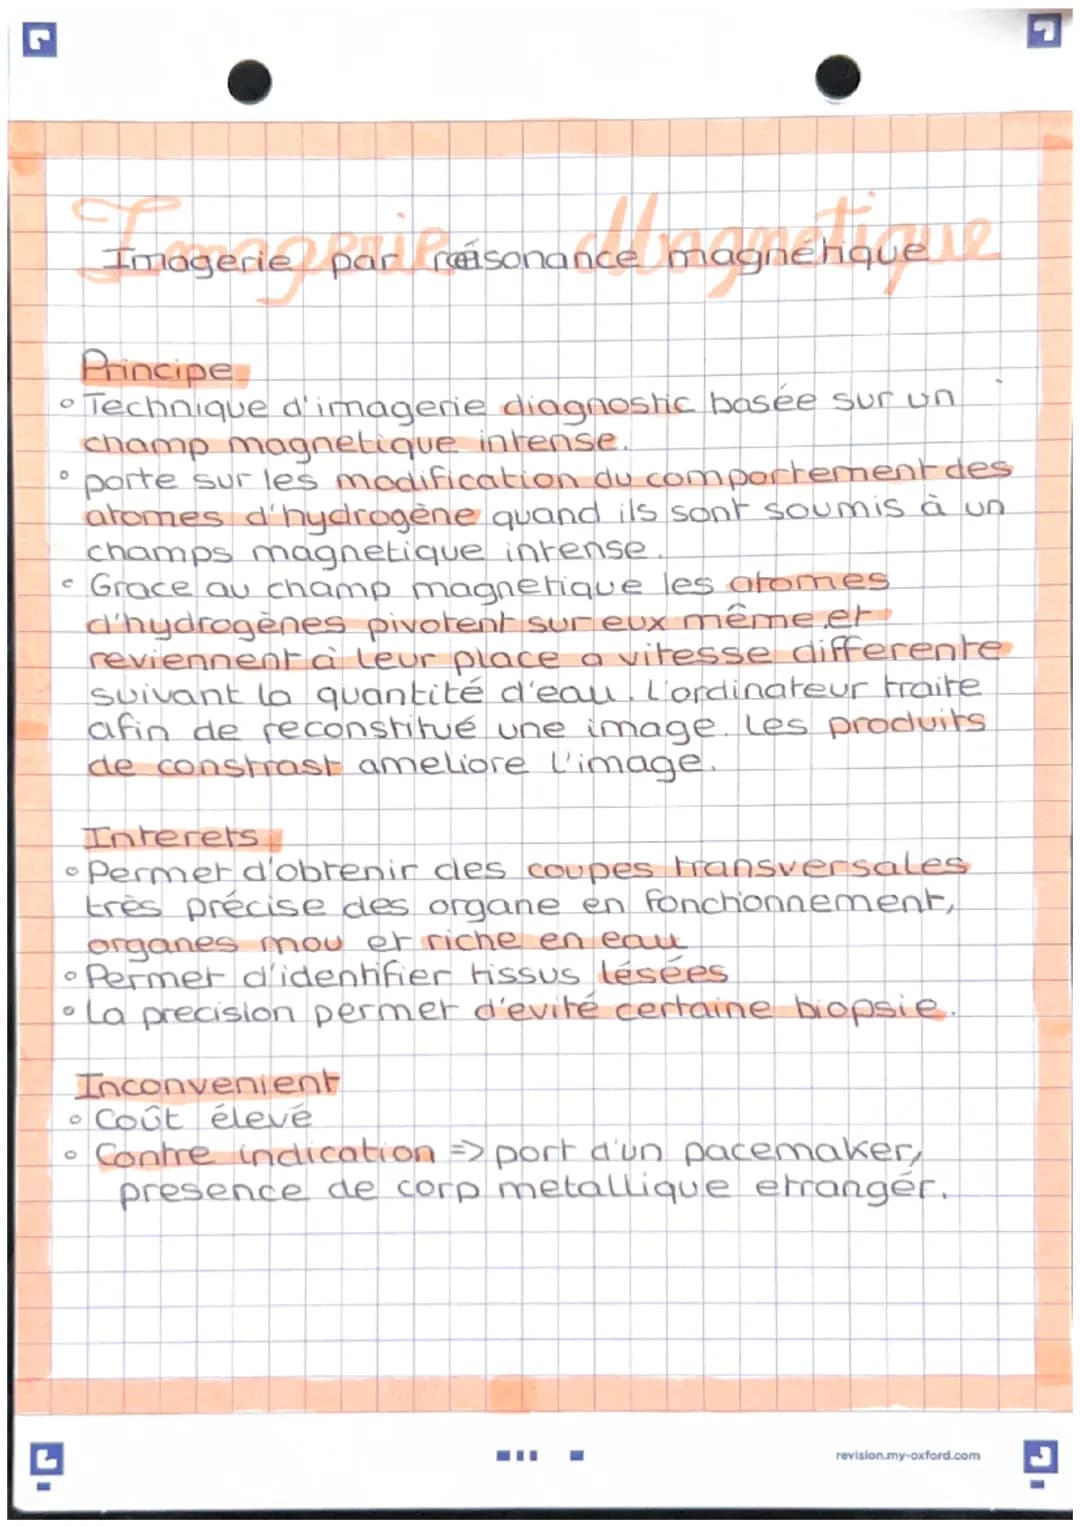 Imagerie Magnétique
Imagerie par résonance magnétique
Principe
Technique d'imagerie diagnostic basée sur un
champ magnetique intense.
porte sur les modification du comportement des
atomes d'hydrogène quand ils sont soumis à un
champs magnetique intense.
Grace au champ magnetique les atomes
d'hydrogènes pivotent sur eux même et
reviennent à leur place a vitesse differente
suivant la quantité d'eau. L'ordinateur traite
afin de reconstitué une image. Les produits
de constrast ameliore l'image.
Interets
Permet d'obtenir des coupes transversales
très précise des organe en fonchionnement,
organes mou et riche en eau
Permet d'identifier tissus lésées
La precision permet d'evité certaine biopsie.
Inconvenient
Coût élevé
Contre indication => port d'un pacemaker,
presence de corp metallique etrangér.
revision.my-oxford.com